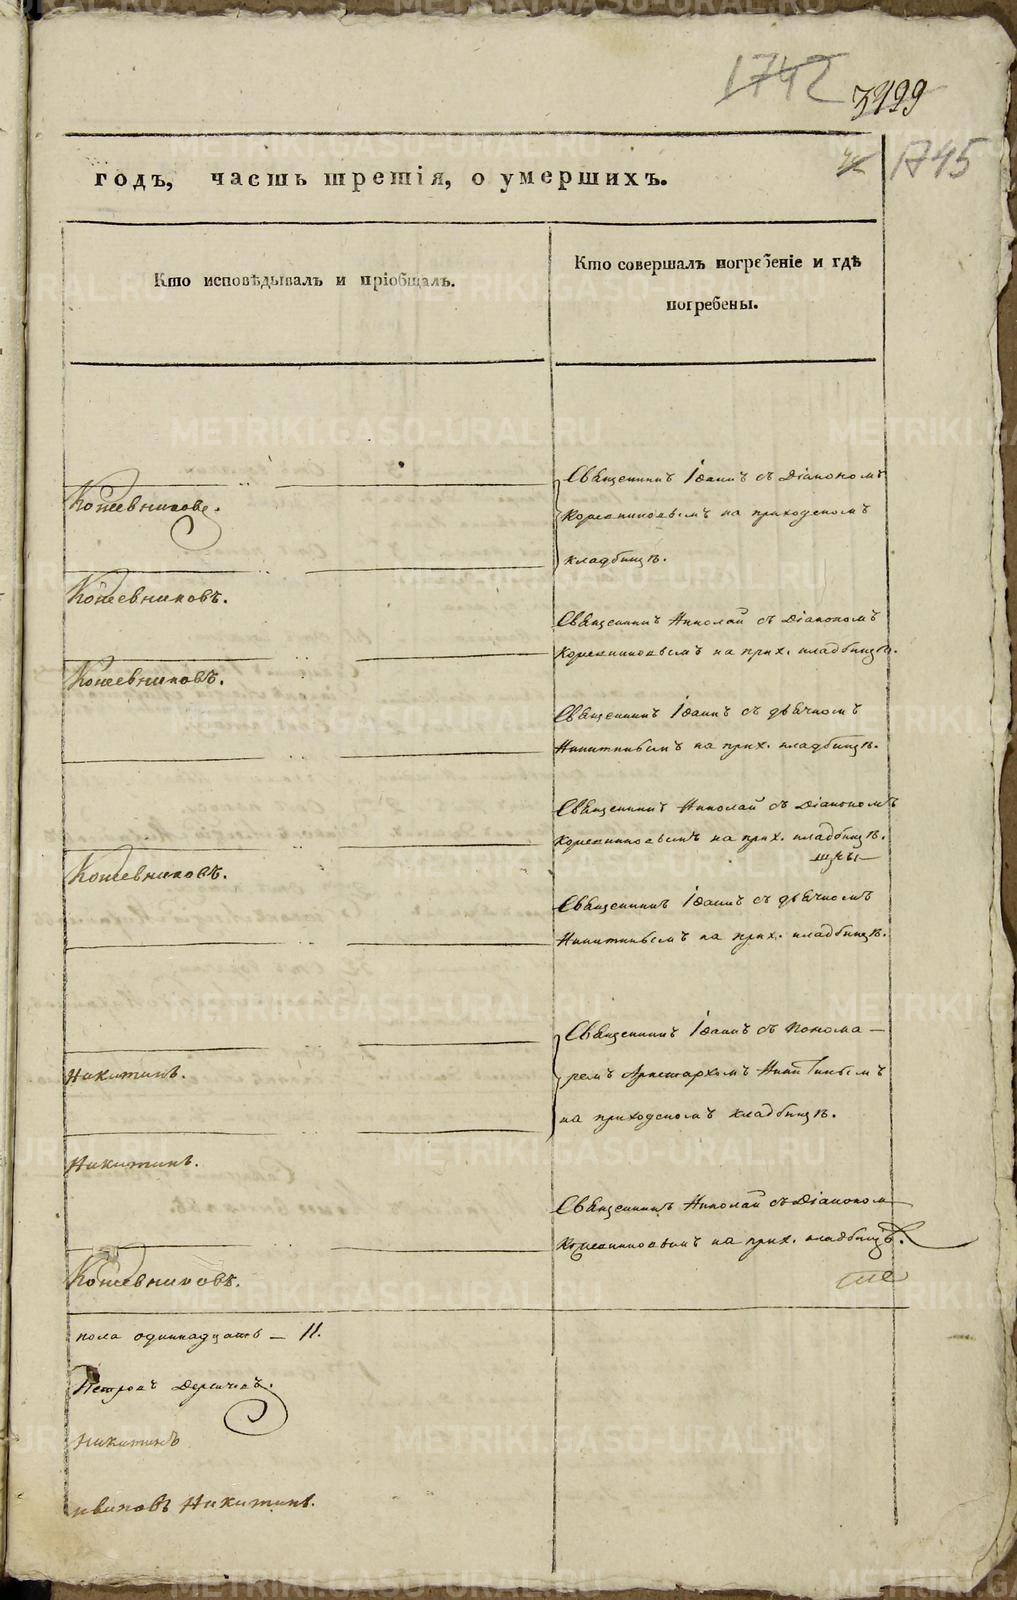 1742
3499
1745
годъ, часть третія, о умершихъ.
Кто исповѣдывалъ и пріобщалъ.
Кто совершалъ погребеніе и гдѣ
погребены.
Священникъ Іоаннъ съ Діакономъ
Кожевникове.
Кожевниковымъ на приходскомъ
кладбищѣ.
Кожевниковъ.
Священникъ Николай съ Діакономъ
Кожевниковымъ на прих. кладбищѣ.
Кожевниковъ.
Священникъ Іоаннъ съ дьячкомъ
Никитинымъ на прих. кладбищѣ.
Священникъ Николай съ Діакономъ
Кожевниковымъ на прих. кладбищѣ.
Кожевниковъ.
Священникъ Іоаннъ съ дьячкомъ
Никитинымъ на прих. кладбищѣ.
Священникъ Іоаннъ съ Понома-
Никитинъ.
ремъ Аристархомъ Никитинымъ
на приходскомъ кладбищѣ.
Никитинъ.
Священникъ Николай съ Діаконом
Кожевниковым на прих. кладбищѣ.
Кожевниковъ.
пола одиннадцать — 11.
Петровъ
Никитинъ
Никитинъ.
METRIKI.GASO-URAL.RU